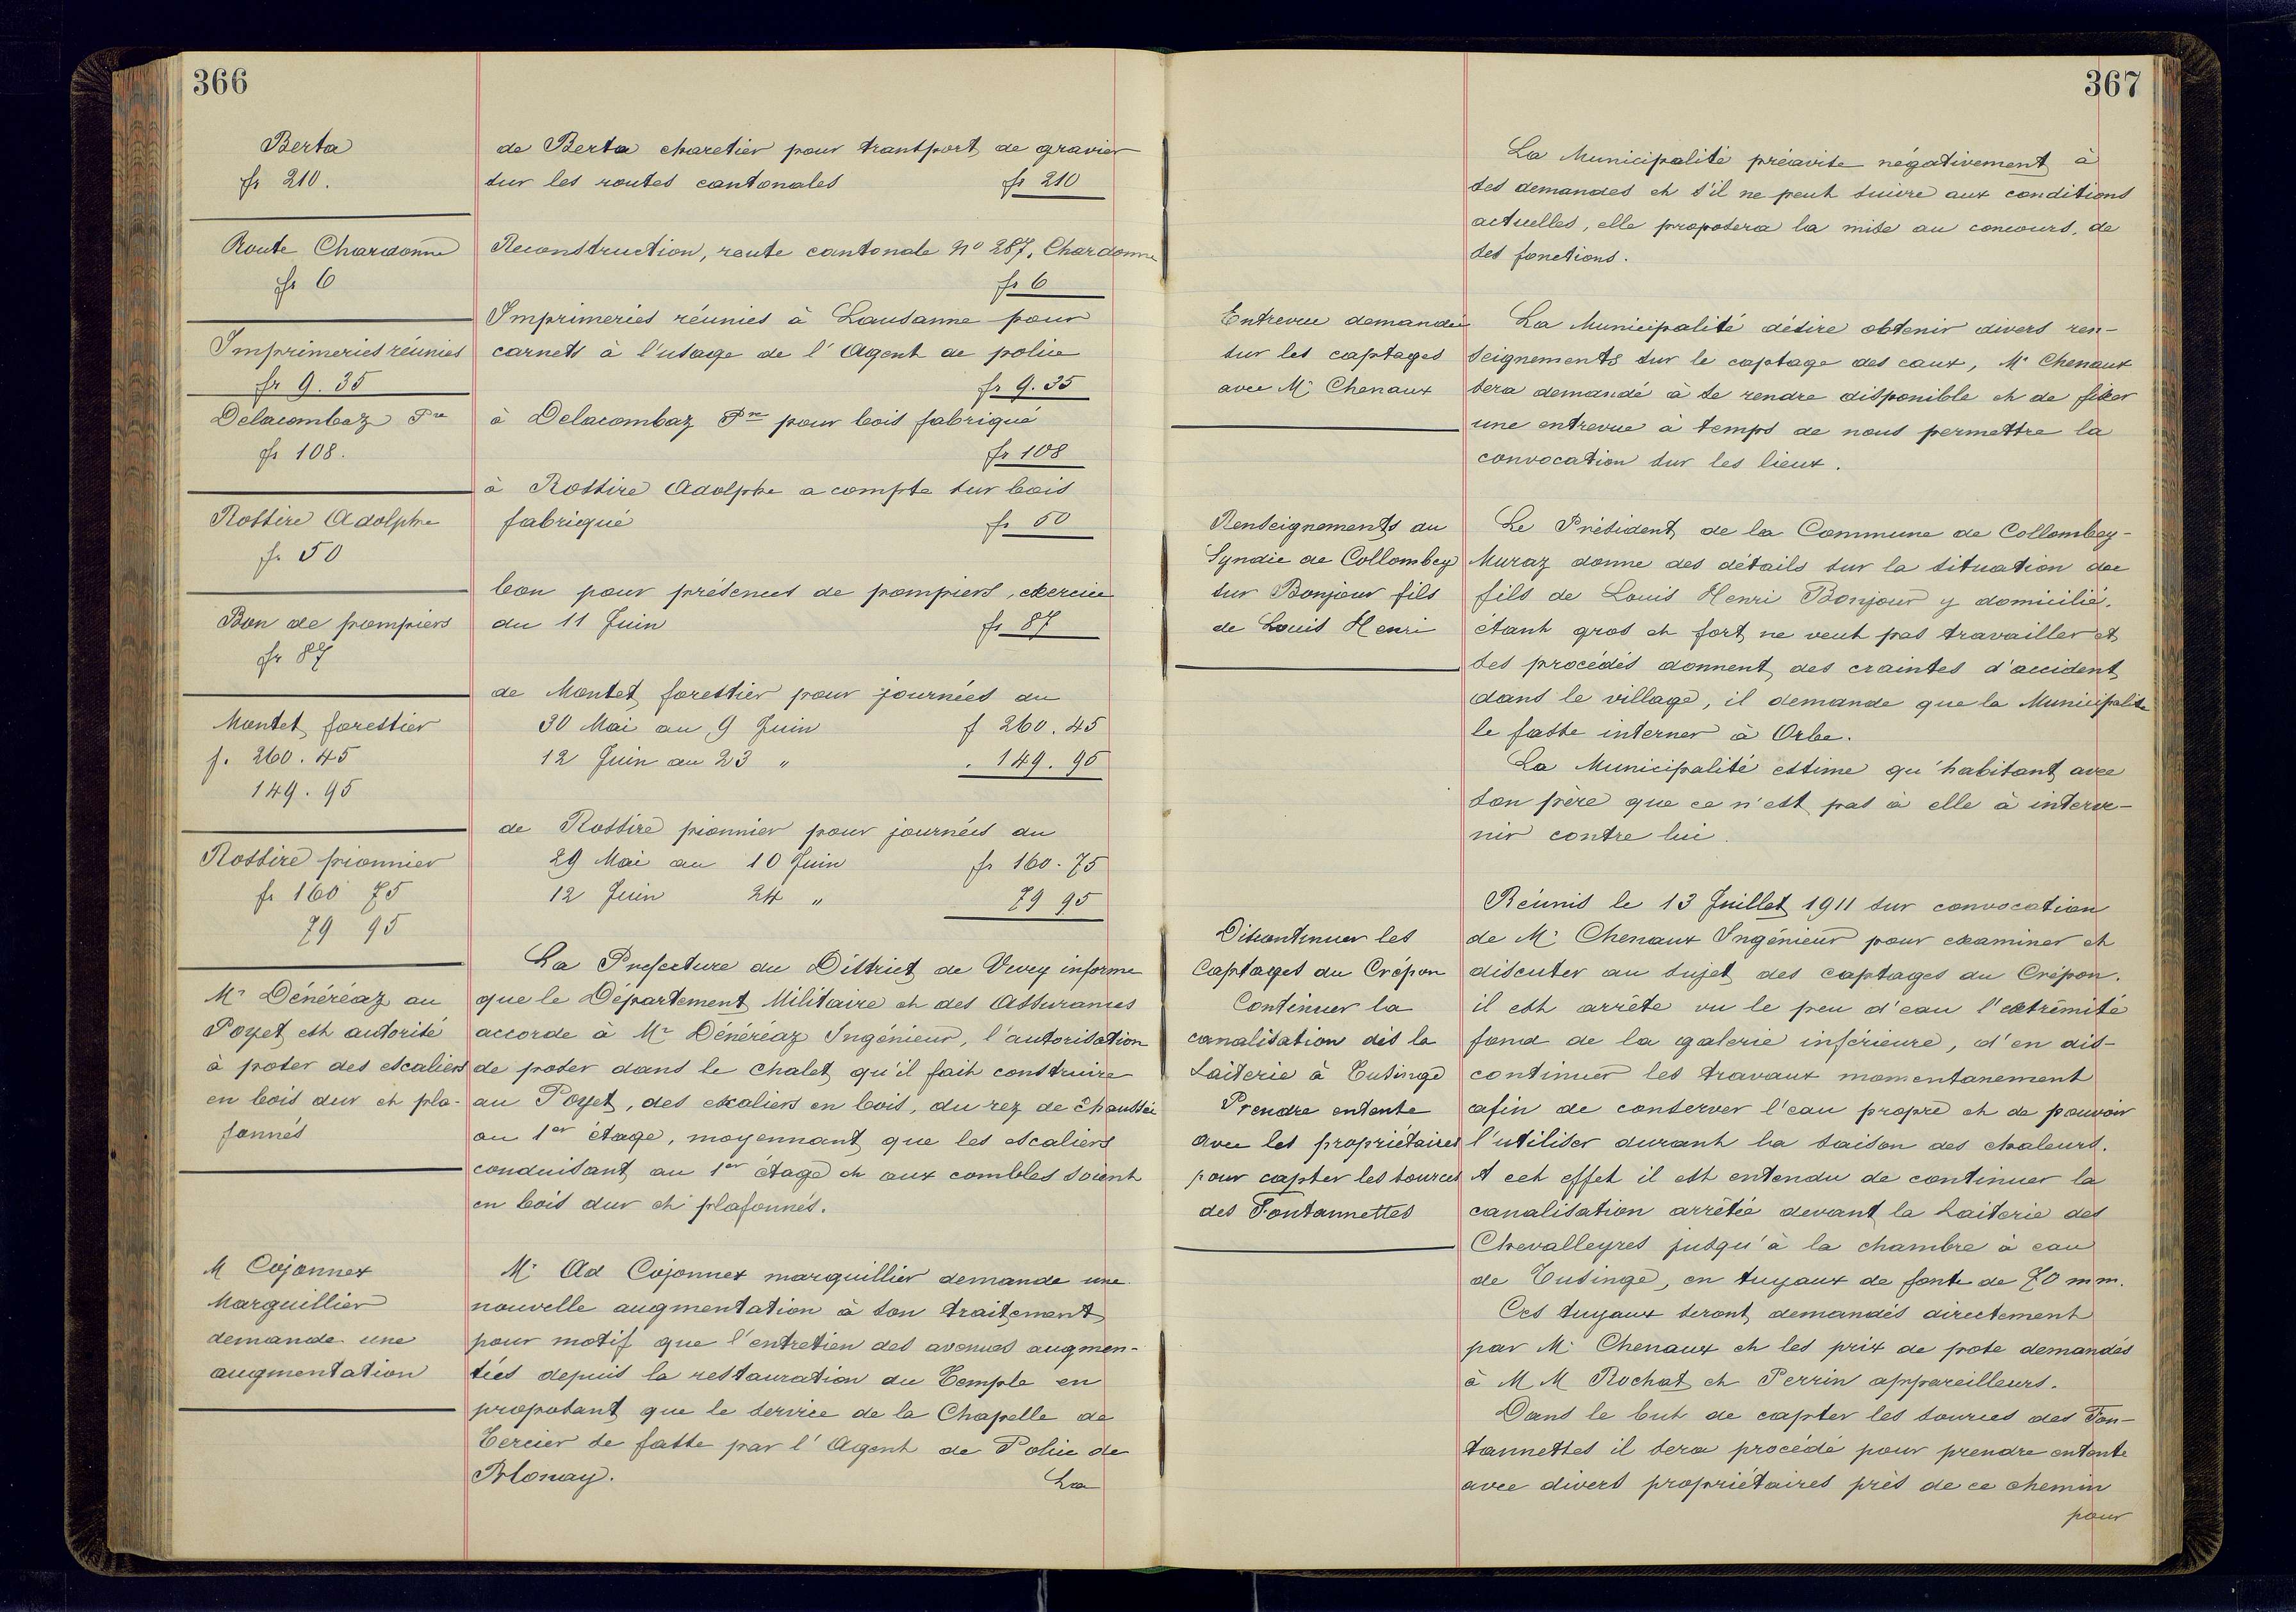 366
Berta
fr 210.
Route Chardonne
fr 6
Imprimeries réunies
fr 9.35
Delacombaz Pre
fr 108.
Rossire Adolphe
fr. 50
Bon de pompiers
fr 87
Montet forestier
f. 260.45
149.95
Rossire pionnier
fr 160 75
79 95
Mr Dénéréaz au
Poyet est autorisé
à poser des escaliers
en bois dur et pla-
fonnés
M Cojonnex
Marguillier
demande une
augmentation
de Berta charetier pour transport de gravier
sur les routes cantonales fr 210
Reconstruction, route cantonale No 287, Chardonne
fr 6
Imprimeries réunies à Lausanne pour
carnets à l'usage de l'Agent de police
fr 9.35
à Delacombaz Pre pour bois fabriqué
fr 108
à Rossire Adolphe a compte sur bois
fabriqué fr 50
bon pour présences de pompiers, exercice
du 11 Juin fr 87
de Montet forestier pour journées du
30 Mai au 9 Juin f 260.45
12 Juin au 23 " . 149.95
de Rossire pionnier pour journées du
29 Mai au 10 Juin fr 160.75
12 Juin 24 " 79 95
La Prefecture du District de Vevey informe
que le Département Militaire et des Assurances
accorde à Mr Dénéréaz Ingénieur, l'autorisation
de poser dans le chalet qu'il fait construire
au Poyet, des escaliers en bois, du rez de chaussée
au 1er étage, moyennant que les escaliers
conduisant au 1er étage et aux combles soient
en bois dur et plafonnés.
Mr Ad Cojonnex marguillier demande une
nouvelle augmentation à son traitement
pour motif que l'entretien des avenues augmen-
tées depuis la restauration du Temple en
proposant que le service de la Chapelle de
Tercier se fasse par l'Agent de Police de
Blonay.
La
367
La Municipalité préavise négativement à
ses demandes et s'il ne peut suivre aux conditions
actuelles, elle proposera la mise au concours, de
ses fonctions.
Entrevue demandée
sur les captages
avec Mr Chenaux
La Municipalité désire obtenir divers ren-
seignements sur le captage des eaux, Mr Chenaux
sera demandé à se rendre disponible et de fixer
une entrevue à temps de nous permettre la
convocation sur les lieux.
Renseignements du
Syndic de Collombey
sur Bonjour fils
de Louis Henri
Le Président de la Commune de Collombey-
Muraz donne des détails sur la situation de
fils de Louis Henri Bonjour y domicilié.
etant gros et fort ne veut pas travailler et
ses procédés donnent des craintes d'accident
dans le village, il demande que la Municipalité
le fasse interner à Orbe.
La Municipalité estime qu'habitant avec
son père que ce n'est pas à elle à interve-
nir contre lui.
Discontinuer les
Captages du Crépon
Continuer la
canalisation dès la
Laiterie à Tusinge
Prendre entente
avec les propriétaires
pour capter les sources
des Fontannettes
Réunis le 13 Juillet 1911 sur convocation
de Mr Chenaux Ingénieur pour examiner et
discuter au sujet des captages du Crépon.
il est arrête vu le peu d'eau l'extrêmité
fond de la galerie inférieure, d'en dis-
continuer les travaux momentanement
afin de conserver l'eau propre et de pouvoir
l'utiliser durant la saison des chaleurs.
A cet effet il est entendu de continuer la
canalisation arrêtée devant la Laiterie des
Chevalleyres jusqu'à la chambre à eau
de Tusinge, en tuyaux de fonte de 70 mm.
Ces tuyaux seront demandés directement
par Mr Chenaux et les prix de pose demandés
à MM Rochat et Perrin appareilleurs.
Dans le but de capter les sources des Fon-
tannettes il sera procédé pour prendre entente
avec divers propriétaires près de ce chemin
pour